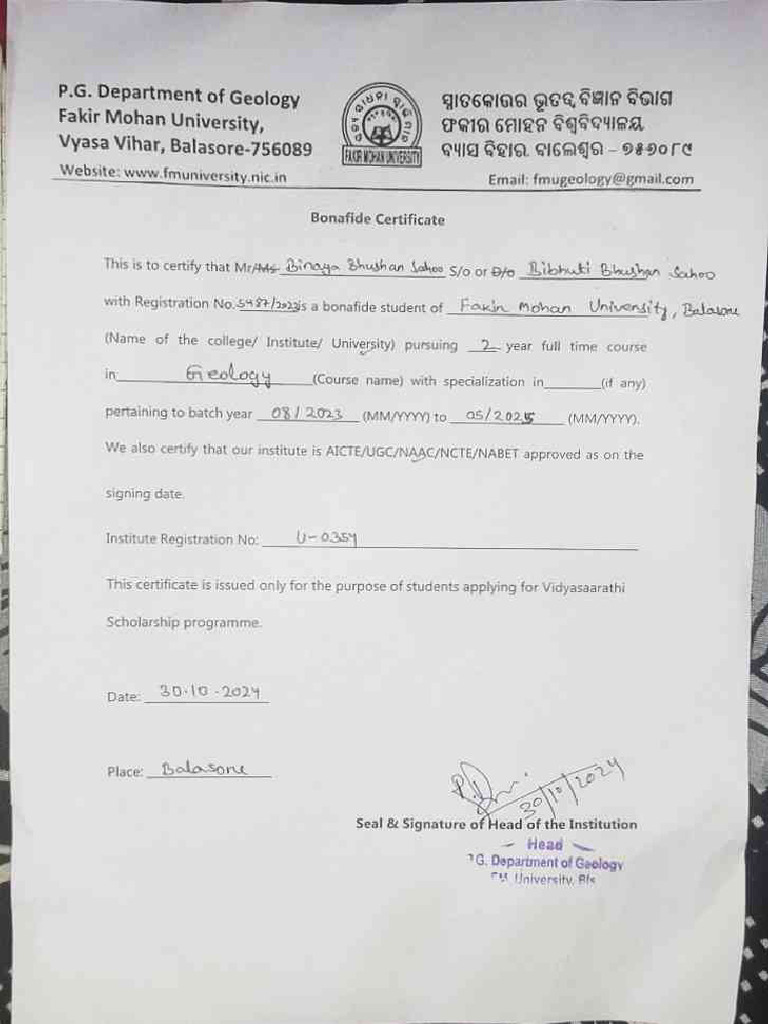 P.G. Department of Geology
Fakir Mohan University,
Vyasa Vihar, Balasore-756089
Website: www.fmuniversity.nic.in
FAKIR MOHAN UNIVERSITY
ସ୍ନାତକୋତ୍ତର ଭୂତତ୍ତ୍ୱ ବିଜ୍ଞାନ ବିଭାଗ
ଫକୀର ମୋହନ ବିଶ୍ୱବିଦ୍ୟାଳୟ
ବ୍ୟାସ ବିହାର, ବାଲେଶ୍ୱର – ୭୫୬୦୮୯
Email: fmugeology@gmail.com
Bonafide Certificate
This is to certify that Mr/Ms Binaya Bhushan Sahoo S/o or D/o Bibhuti Bhushan Sahoo
with Registration No. 5487/2023 is a bonafide student of Fakir Mohan University, Balasore
(Name of the college/ Institute/ University) pursuing 2 year full time course
in Geology (Course name) with specialization in (if any)
pertaining to batch year 08/2023 (MM/YYYY) to 05/2025 (MM/YYYY).
We also certify that our institute is AICTE/UGC/NAAC/NCTE/NABET approved as on the
signing date.
Institute Registration No: U-0354
This certificate is issued only for the purpose of students applying for Vidyasaarathi
Scholarship programme.
Date: 30.10-2024
Place: Balasore
30/10/2024
Seal & Signature of Head of the Institution
Head
G. Department of Geology
University, Bls